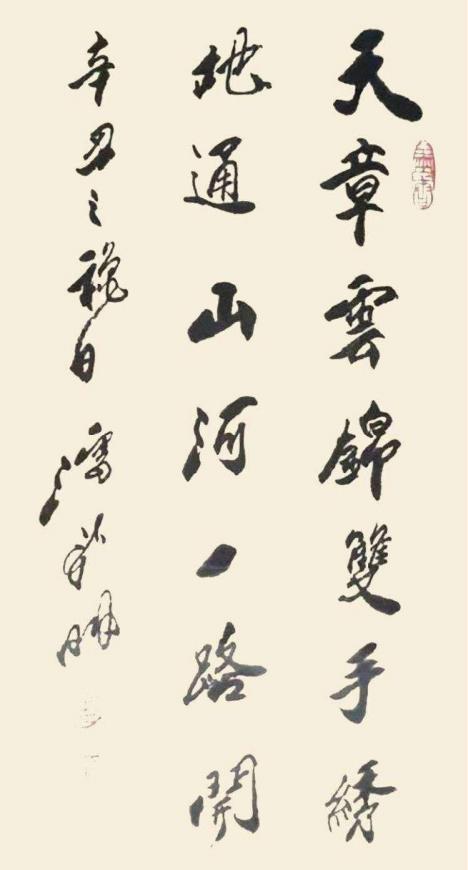 天章雲錦雙手綉
地通山河一路開
辛丑之穐日 潘